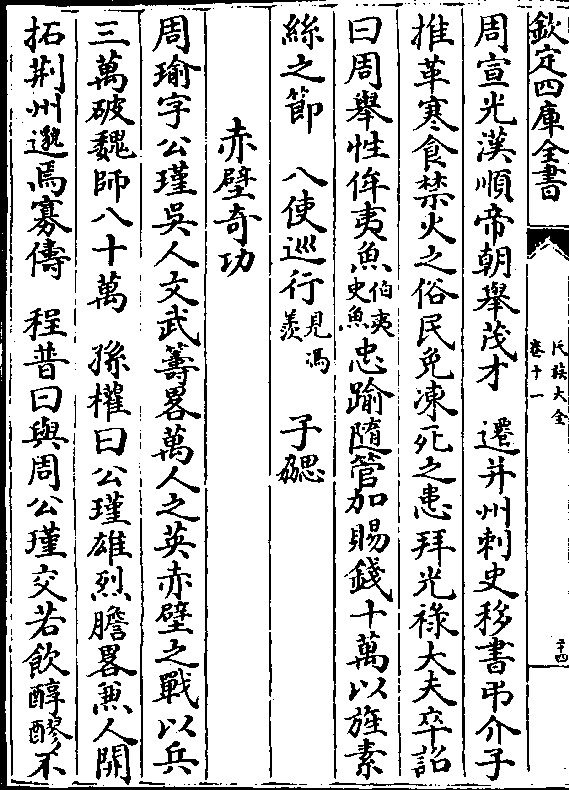 欽定四庫全書
氏族大全
卷十一
二十四
周宣光漢順帝朝舉茂才　遷并州刺史移書弔介子
推革寒食禁火之俗民免凍死之患拜光祿大夫卒詔
曰周舉性侔夷魚伯夷史魚忠踰隨管加賜錢十萬以旌素
絲之節　八使巡行見馮羨　子勰
赤壁奇功
周瑜字公瑾吳人文武籌畧萬人之英赤壁之戰以兵
三萬破魏師八十萬　孫權曰公瑾雄烈膽畧兼人開
拓荆州邈焉寡儔　程普曰與周公瑾交若飲醇醪不